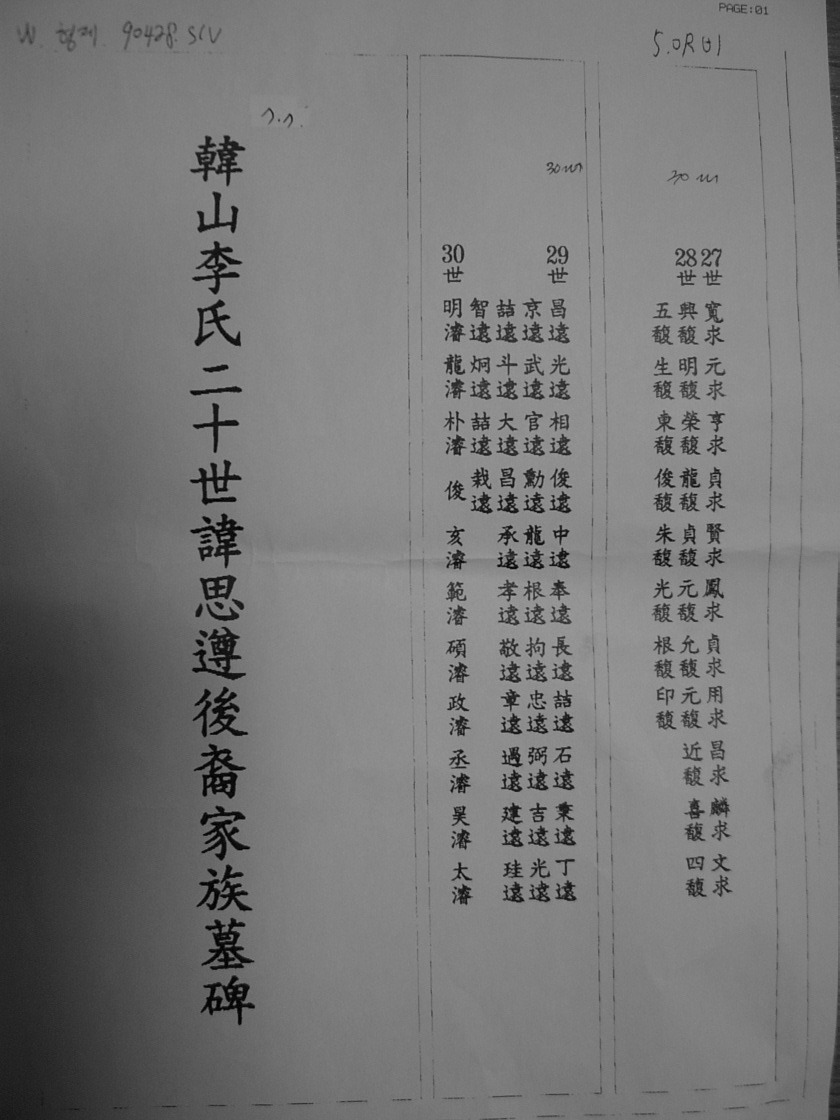 PAGE:01
W. 형제 90428. SIV
5.0R 01
30 m
27世 寬求 元求 亨求 貞求 賢求 鳳求 貞求 用求 昌求 麟求 文求
28世 興馥 明馥 榮馥 龍馥 貞馥 元馥 允馥 元馥 近馥 喜馥 四馥
五馥 生馥 東馥 俊馥 朱馥 光馥 根馥 印馥
30 m
29世 昌遠 光遠 相遠 俊遠 中遠 奉遠 長遠 詰遠 石遠 秉遠 丁遠
京遠 武遠 官遠 勳遠 龍遠 根遠 拘遠 忠遠 弼遠 吉遠 光遠
詰遠 斗遠 大遠 昌遠 承遠 孝遠 敬遠 章遠 遇遠 建遠 珪遠
智遠 炯遠 詰遠 栽遠
30世 明濬 龍濬 朴濬 俊 亥濬 範濬 碩濬 政濬 丞濬 昊濬 太濬
韓山李氏二十世諱思遵後裔家族墓碑